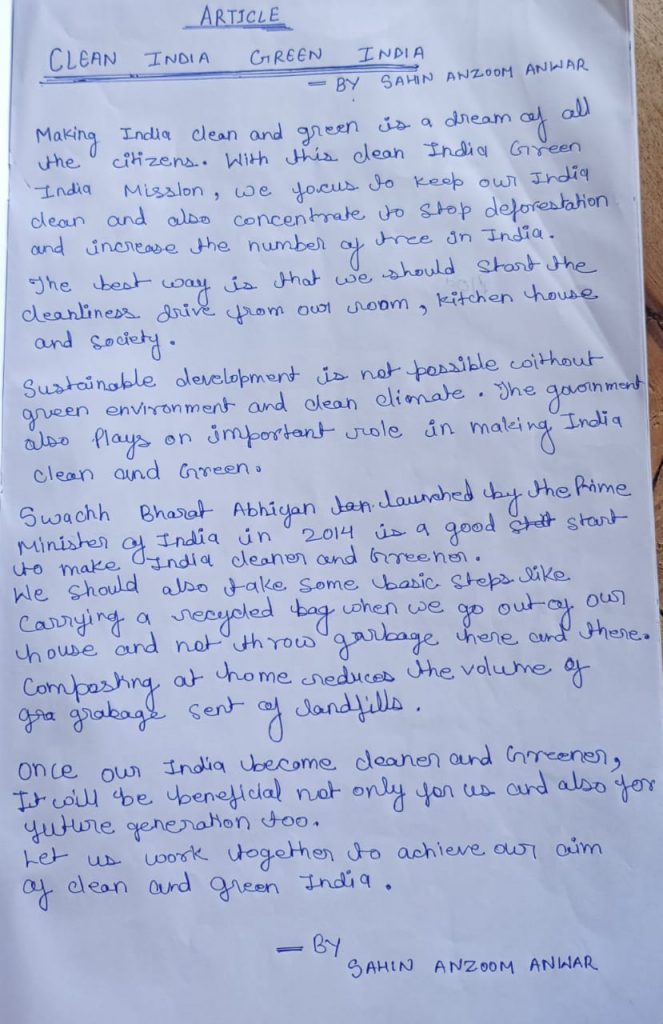 ARTICLE
CLEAN INDIA GREEN INDIA
— BY SAHIN ANZOOM ANWAR
Making India clean and green is a dream of all
the citizens. With this clean India Green
India Mission, we focus to keep our India
clean and also concentrate to stop deforestation
and increase the number of tree in India.
The best way is that we should start the
cleanliness drive from our room, kitchen house
and society.
Sustainable development is not possible without
green environment and clean climate. The govinment
also Plays on important role in making India
clean and Green.
Swachh Bharat Abhiyan launched by the Prime
Minister of India in 2014 is a good start
to make India cleaner and Greener.
We should also take some basic steps like
Carrying a recycled bag when we go out of our
house and not throw garbage here and there.
Composting at home reduces the volume of
gra grabage sent of landfills.
Once our India become cleaner and Greener,
It will be beneficial not only for us and also for
future generation too.
Let us work together to achieve our aim
of clean and green India.
— BY
SAHIN ANZOOM ANWAR